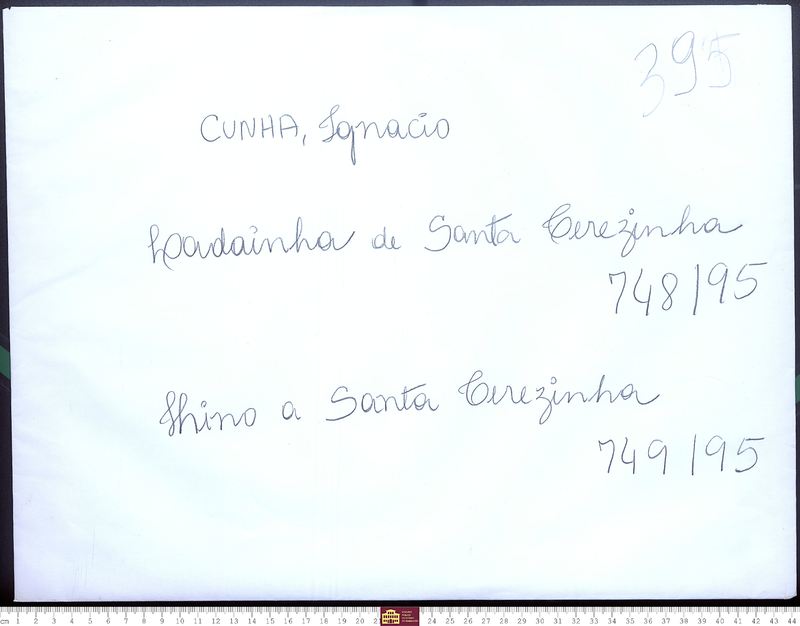 395
CUNHA, Ignacio
Ladainha de Santa Terezinha
748/95
Hino a Santa Terezinha
749/95
cm 1 2 3 4 5 6 7 8 9 10 11 12 13 14 15 16 17 18 19 20 21 24 25 26 27 28 29 30 31 32 33 34 35 36 37 38 39 40 41 42 43 44